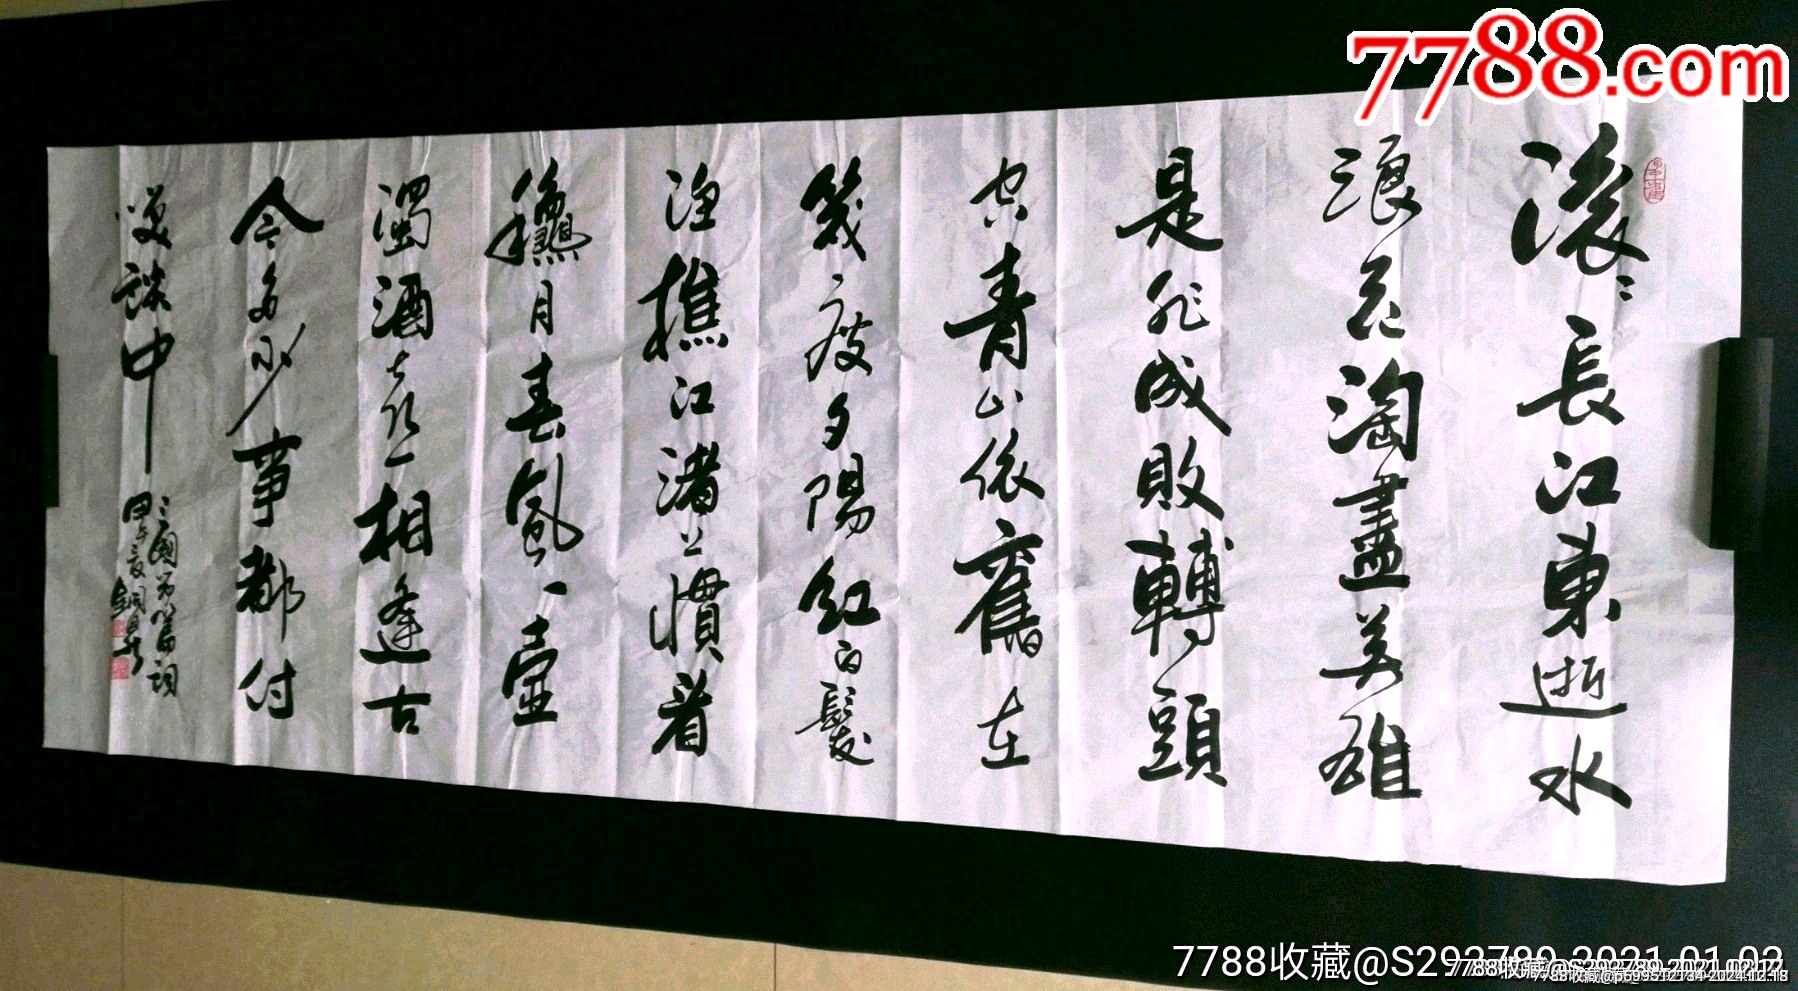 滚〻長江東逝水
浪花淘盡英雄
是非成敗轉頭
空青山依舊在
幾度夕陽紅白髮
渔樵江渚上慣看
龝月春風一壺
濁酒喜相逢古
今多少事都付
笑談中
三國 篇詞
甲午
7788.com
7788收藏@S293789 2021.01.02